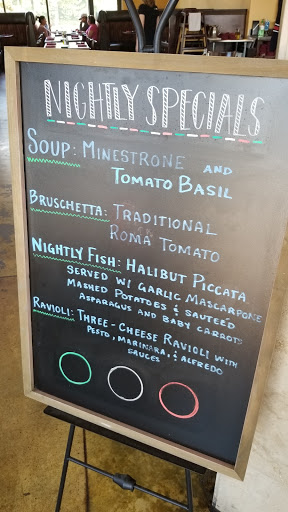 NIGHTLY SPECIALS
SOUP: MINESTRONE AND
TOMATO BASIL
BRUSCHETTA: TRADITIONAL
ROMA TOMATO
NIGHTLY FISH: HALIBUT PICCATA
SERVED W/ GARLIC MASCARPONE
MASHED POTATOES & SAUTEE'D
ASPARAGUS AND BABY CARROTS
RAVIOLI: THREE-CHEESE RAVIOLI WITH
PESTO, MARINARA, & ALFREDO
SAUCES